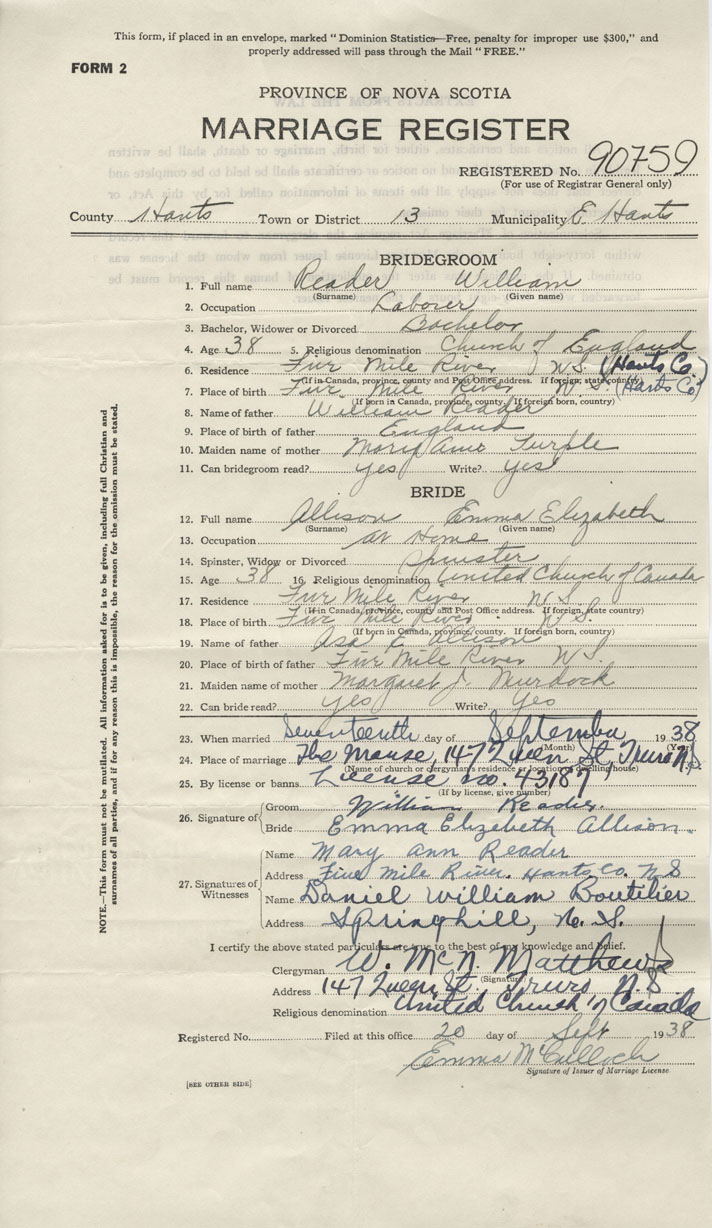 This form, if placed in an envelope, marked "Dominion Statistics—Free, penalty for improper use $300," and
properly addressed will pass through the Mail "FREE."
FORM 2
PROVINCE OF NOVA SCOTIA
MARRIAGE REGISTER
REGISTERED No. 90759
(For use of Registrar General only)
County Hants Town or District 13 Municipality E Hants
BRIDEGROOM
1. Full name Reader William
(Surname) (Given name)
2. Occupation Laborer
3. Bachelor, Widower or Divorced Bachelor
4. Age 38 5. Religious denomination Church of England
6. Residence Five Mile River N.S. (Hants Co.)
(If in Canada, province, county and Post Office address. If foreign, state country)
7. Place of birth Five Mile River N.S. (Hants Co)
(If born in Canada, province, county. If foreign born, country)
8. Name of father William Reader
9. Place of father England
10. Maiden name of mother Mary Ann Turple
11. Can bridegroom read? yes Write? yes
BRIDE
12. Full name Allison Emma Elizabeth
(Surname) (Given name)
13. Occupation at Home
14. Spinster, Widow or Divorced Spinster
15. Age 38 16. Religious denomination United Church of Canada
17. Residence Five Mile River N.S.
(If in Canada, province, county and Post Office address. If foreign, state country)
18. Place of birth Five Mile River N.S.
(If born in Canada, province, county. If foreign born, country)
19. Name of father Asa Allison
20. Place of birth of father Five Mile River N.S.
21. Maiden name of mother Margaret J. Murdock
22. Can bride read? yes Write? Yes
23. When married Seventeenth day of September 1938
(Month) (Year)
24. Place of marriage The Manse, 147 Queen St, Truro N.S.
(Name of church or clergyman's residence or location of dwelling house)
25. By license or banns License no. 43187
(If by license, give number)
26. Signature of Groom William Reader.
Bride Emma Elizebeth Allison.
27. Signatures of Witnesses
Name Mary Ann Reader
Address Five Mile River. Hants Co. N S
Name Daniel William Boutilier
Address Springhill, N. S.
I certify the above stated particulars are true to the best of my knowledge and belief.
Clergyman W. McN. Matthews
(Signature)
Address 147 Queen St. Truro N.S
Religious denomination United Church of Canada
Registered No. Filed at this office 20 day of Sept 1938
Emma McCulloch
Signature of Issuer of Marriage License
[SEE OTHER SIDE]
NOTE.—This form must not be mutilated. All information asked for is to be given, including full Christian and
surnames of all parties, and if for any reason this is impossible, the reason for the omission must be stated.